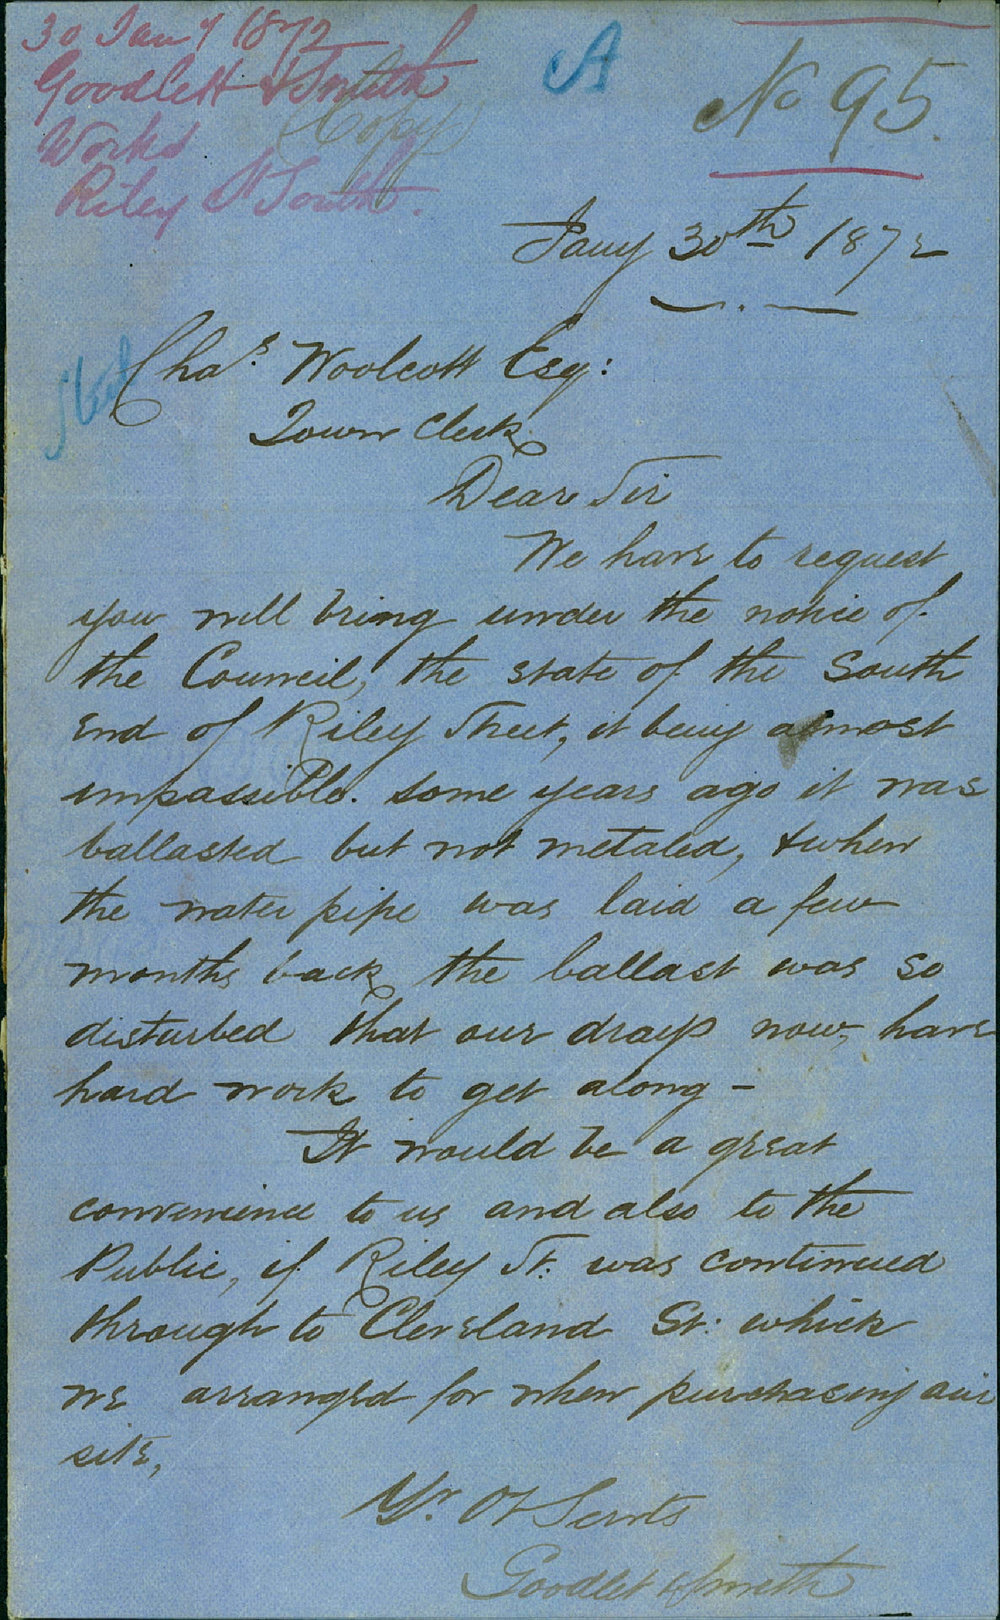 30 Jany 1872
Goodlett & Smith
Works
Riley St South.
(Copy)
A
No 95.
Jany 30th 1872
Chas. Woolcott Esq:
Town Clerk
Dear Sir
We have to request
you will bring under the notice of
the Council, the state of the South
End of Riley Street, it being almost
impassible. some years ago it was
ballasted but not metaled, & when
the water pipe was laid a few
months back the ballast was so
disturbed that our drays now, have
hard work to get along -
It would be a great
convenience to us and also to the
Public, if Riley St. was continued
through to Cleveland St: which
we arranged for when purchasing our
site,
Yr. Ot Servts
Goodlet & Smith